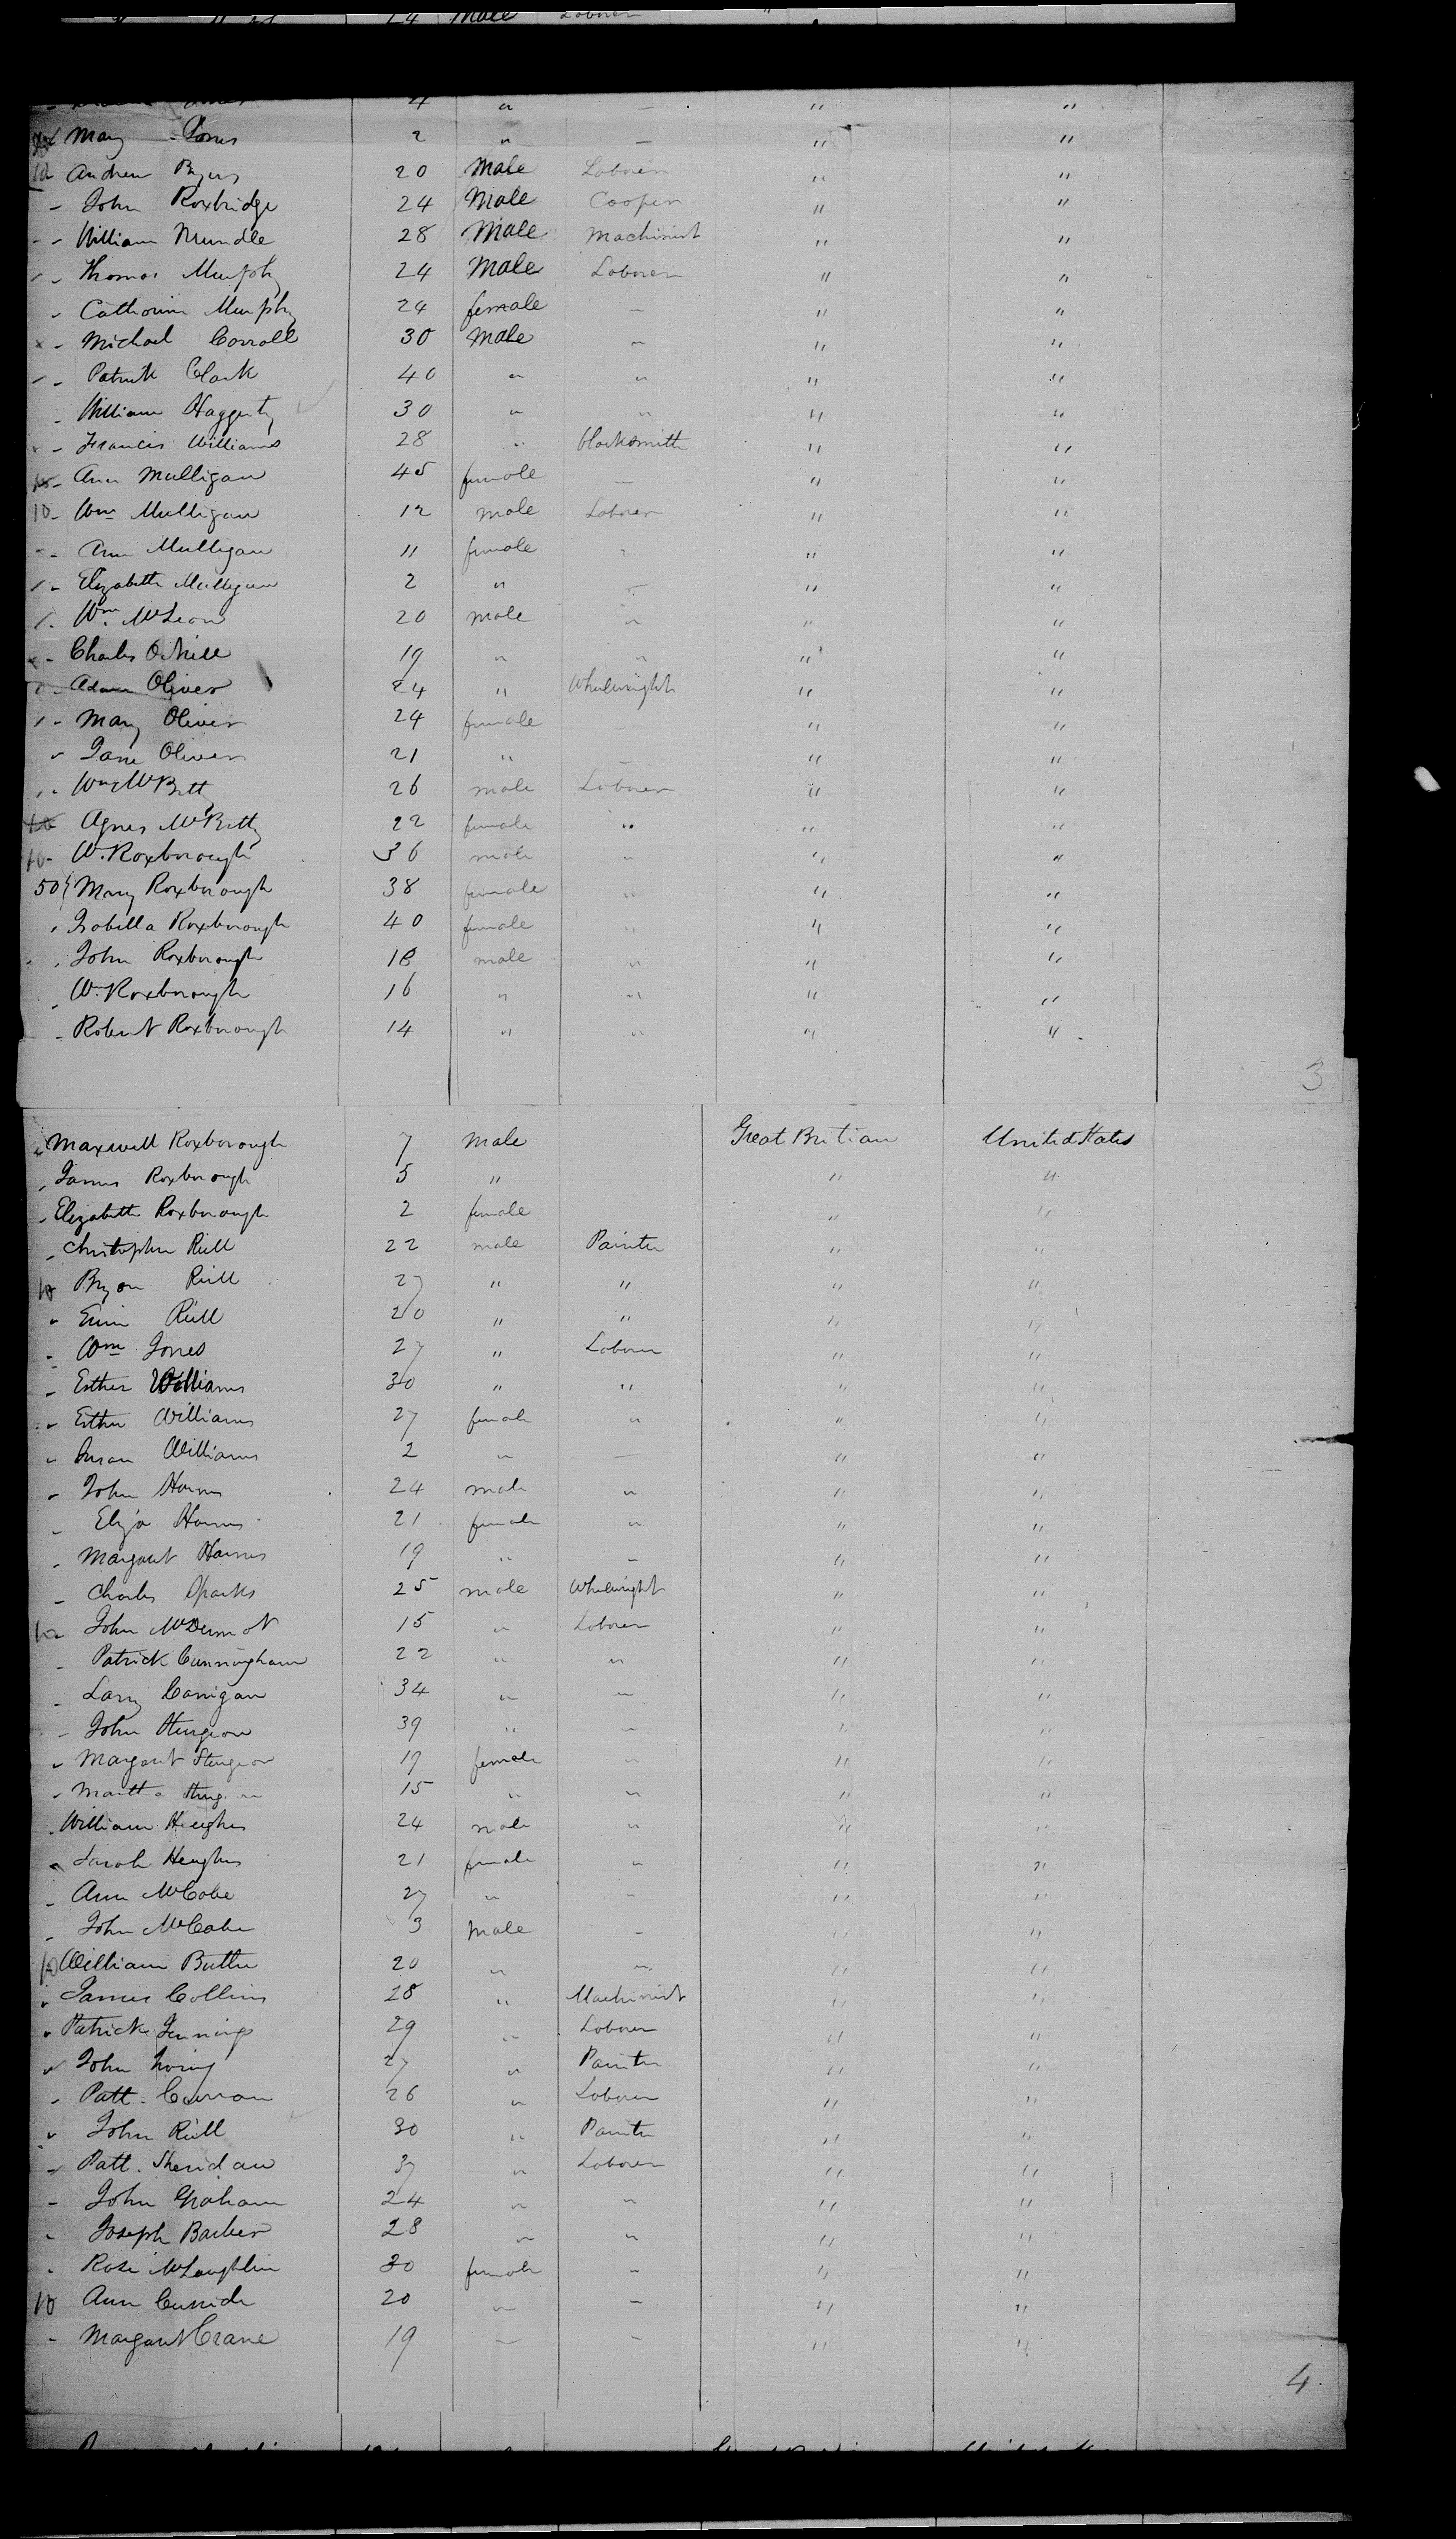 24 Male Laborer "
4 " — " "
Mary Jones 2 " — " "
10 Andrew Byers 20 Male Laborer " "
- John Roxbridge 24 Male Cooper " "
- - William Mundle 28 Male Machinist " "
- Thomas Murphy 24 Male Laborer " "
- Catherine Murphy 24 female - " "
x - Michael Carroll 30 Male " " "
- Patrick Clark 40 " " " "
- William Haggerty 30 " " " "
- Francis Williams 28 " blacksmith " "
Ann Mulligan 45 female — " "
10- Wm Mulligan 12 male Laborer " "
- Ann Mulligan 11 female " " "
- Elizabeth Mulligan 2 " — " "
- Wm. McLean 20 male " " "
- Charles O'Neill 19 " " " "
- Adam Oliver 24 " Whelwright " "
- Mary Oliver 24 female " "
- Jane Oliver 21 " — " "
Wm McBett 26 male Laborer " "
10 Agnes McBetty 22 female " " "
10- W. Roxborough 36 male " " "
50 { Mary Roxborough 38 female " " "
Isabella Roxborough 40 female " " "
John Roxborough 18 male " " "
- Wm Roxborough 16 " " " "
- Robert Roxborough 14 " " " "
3
Maxwell Roxborough 7 Male Great Britian United States
- James Roxborough 5 " " "
- Elizabeth Roxborough 2 female " "
- Christopher Riell 22 male Painter " "
10 Bryon Riell 27 " " " "
" Riell 20 " " " "
- Wm Jones 27 " Laborer " "
- Esther Williams 30 " " " "
- Esther Williams 27 female " " "
- Susan Williams 2 " — " "
- John Harris 24 male " " "
- Eliza Harris 21 female " " "
- Margaret Harris 19 " - " "
- Charles Sparks 25 male Whelwright " "
10 John McDermot 15 " Laborer " "
- Patrick Cunningham 22 " " " "
- Larry Carrigan 34 " " " "
- John Sturgeon 39 " " " "
- Margaret Sturgeon 19 female " " "
- Martha 15 " " " "
- William Hughes 24 male " " "
- Sarah Hughes 21 female " " "
- Ann McCabe 27 " - " "
- John McCabe 3 Male - " "
10 William Butler 20 " " " "
" James Collins 28 " Machinist " "
" Patrick Jennings 29 " Laborer " "
" John Irving 27 " Painter " "
- Patt. Curran 26 " Laborer " "
" John Riell 30 " Painter " "
- Patt. Sheridan 37 " Laborer " "
- John Graham 24 " " " "
- Joseph Barber 28 " " " "
- Rose McLaughlin 30 female - " "
10 Ann 20 " - " "
- Margaret Crane 19 — - " "
4